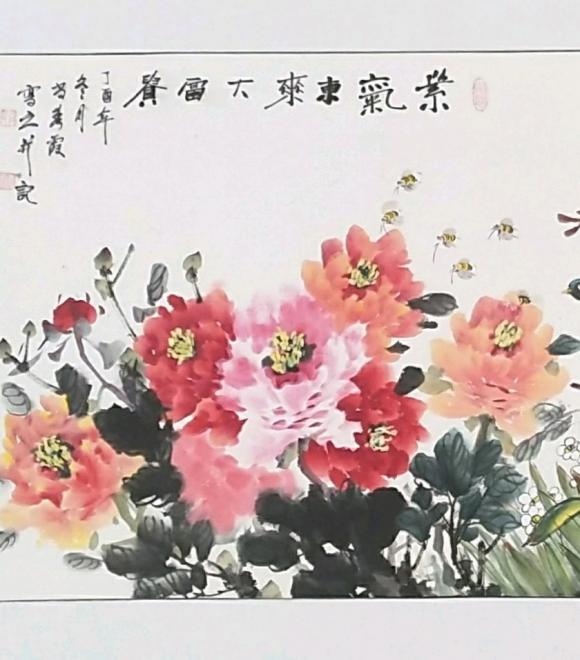 紫氣東來大富貴
丁酉年
冬月
霞
寫之并記